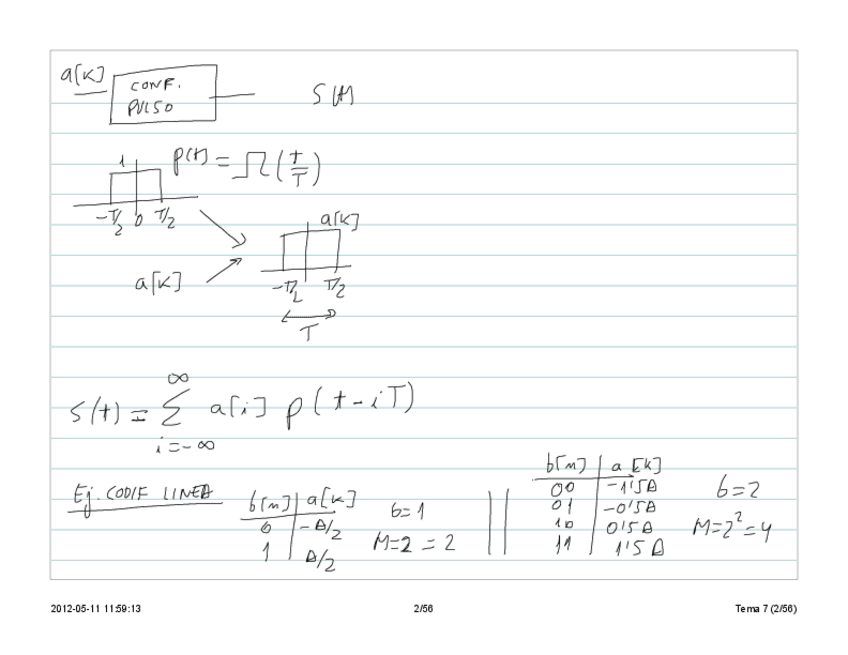 a[k] CONF. PULSO S(t)
1 p(t) = Π(t/T)
-T/2 0 T/2
a[k]
a[k] -T/2 T/2
T
s(t) = ∑_{i=-∞}^{∞} a[i] p(t-iT)
Ej. CODIF LINEA
b[m] | a[k]
0 | -A/2
1 | A/2
b=1
M=2 = 2
b[m] | a[k]
00 | -1'5A
01 | -0'5A
10 | 0'5A
11 | 1'5A
b=2
M=2²=4
2012-05-11 11:59:13 2/56 Tema 7 (2/56)